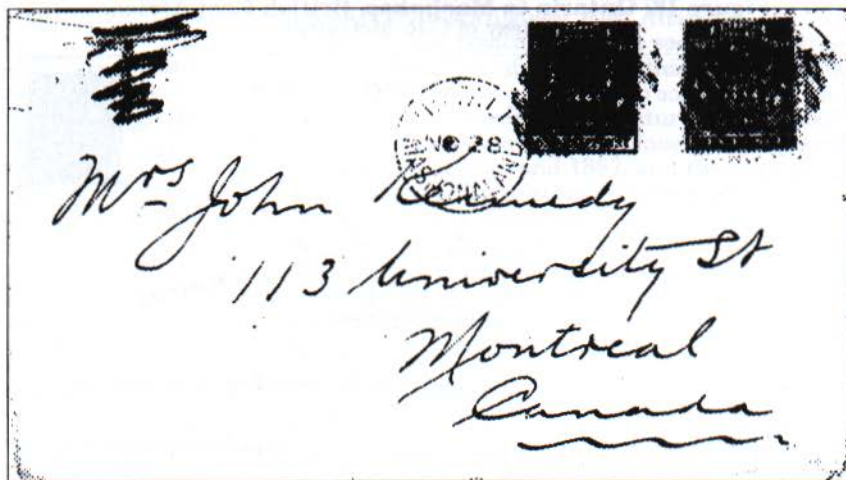 NO 28
Mrs John Kennedy
113 University St
Montreal
Canada